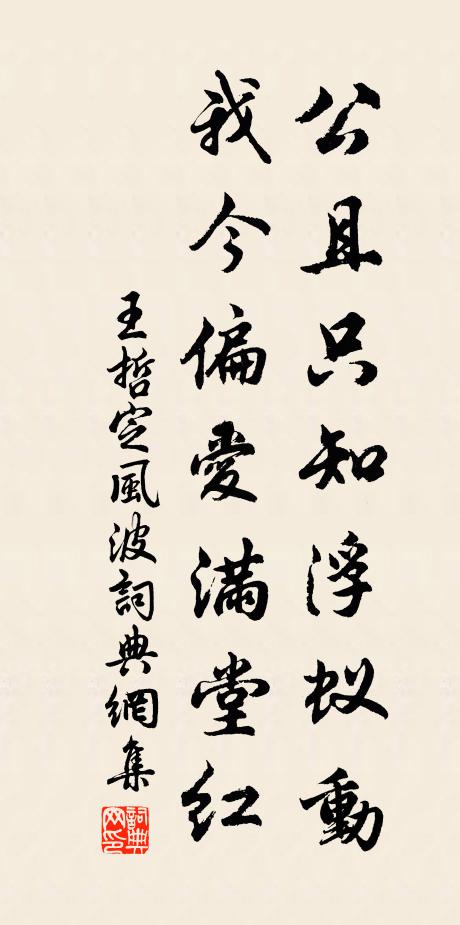 公且只知浮蚁動
我今偏愛滿堂紅
王哲定風波詞典網集
詞典網印